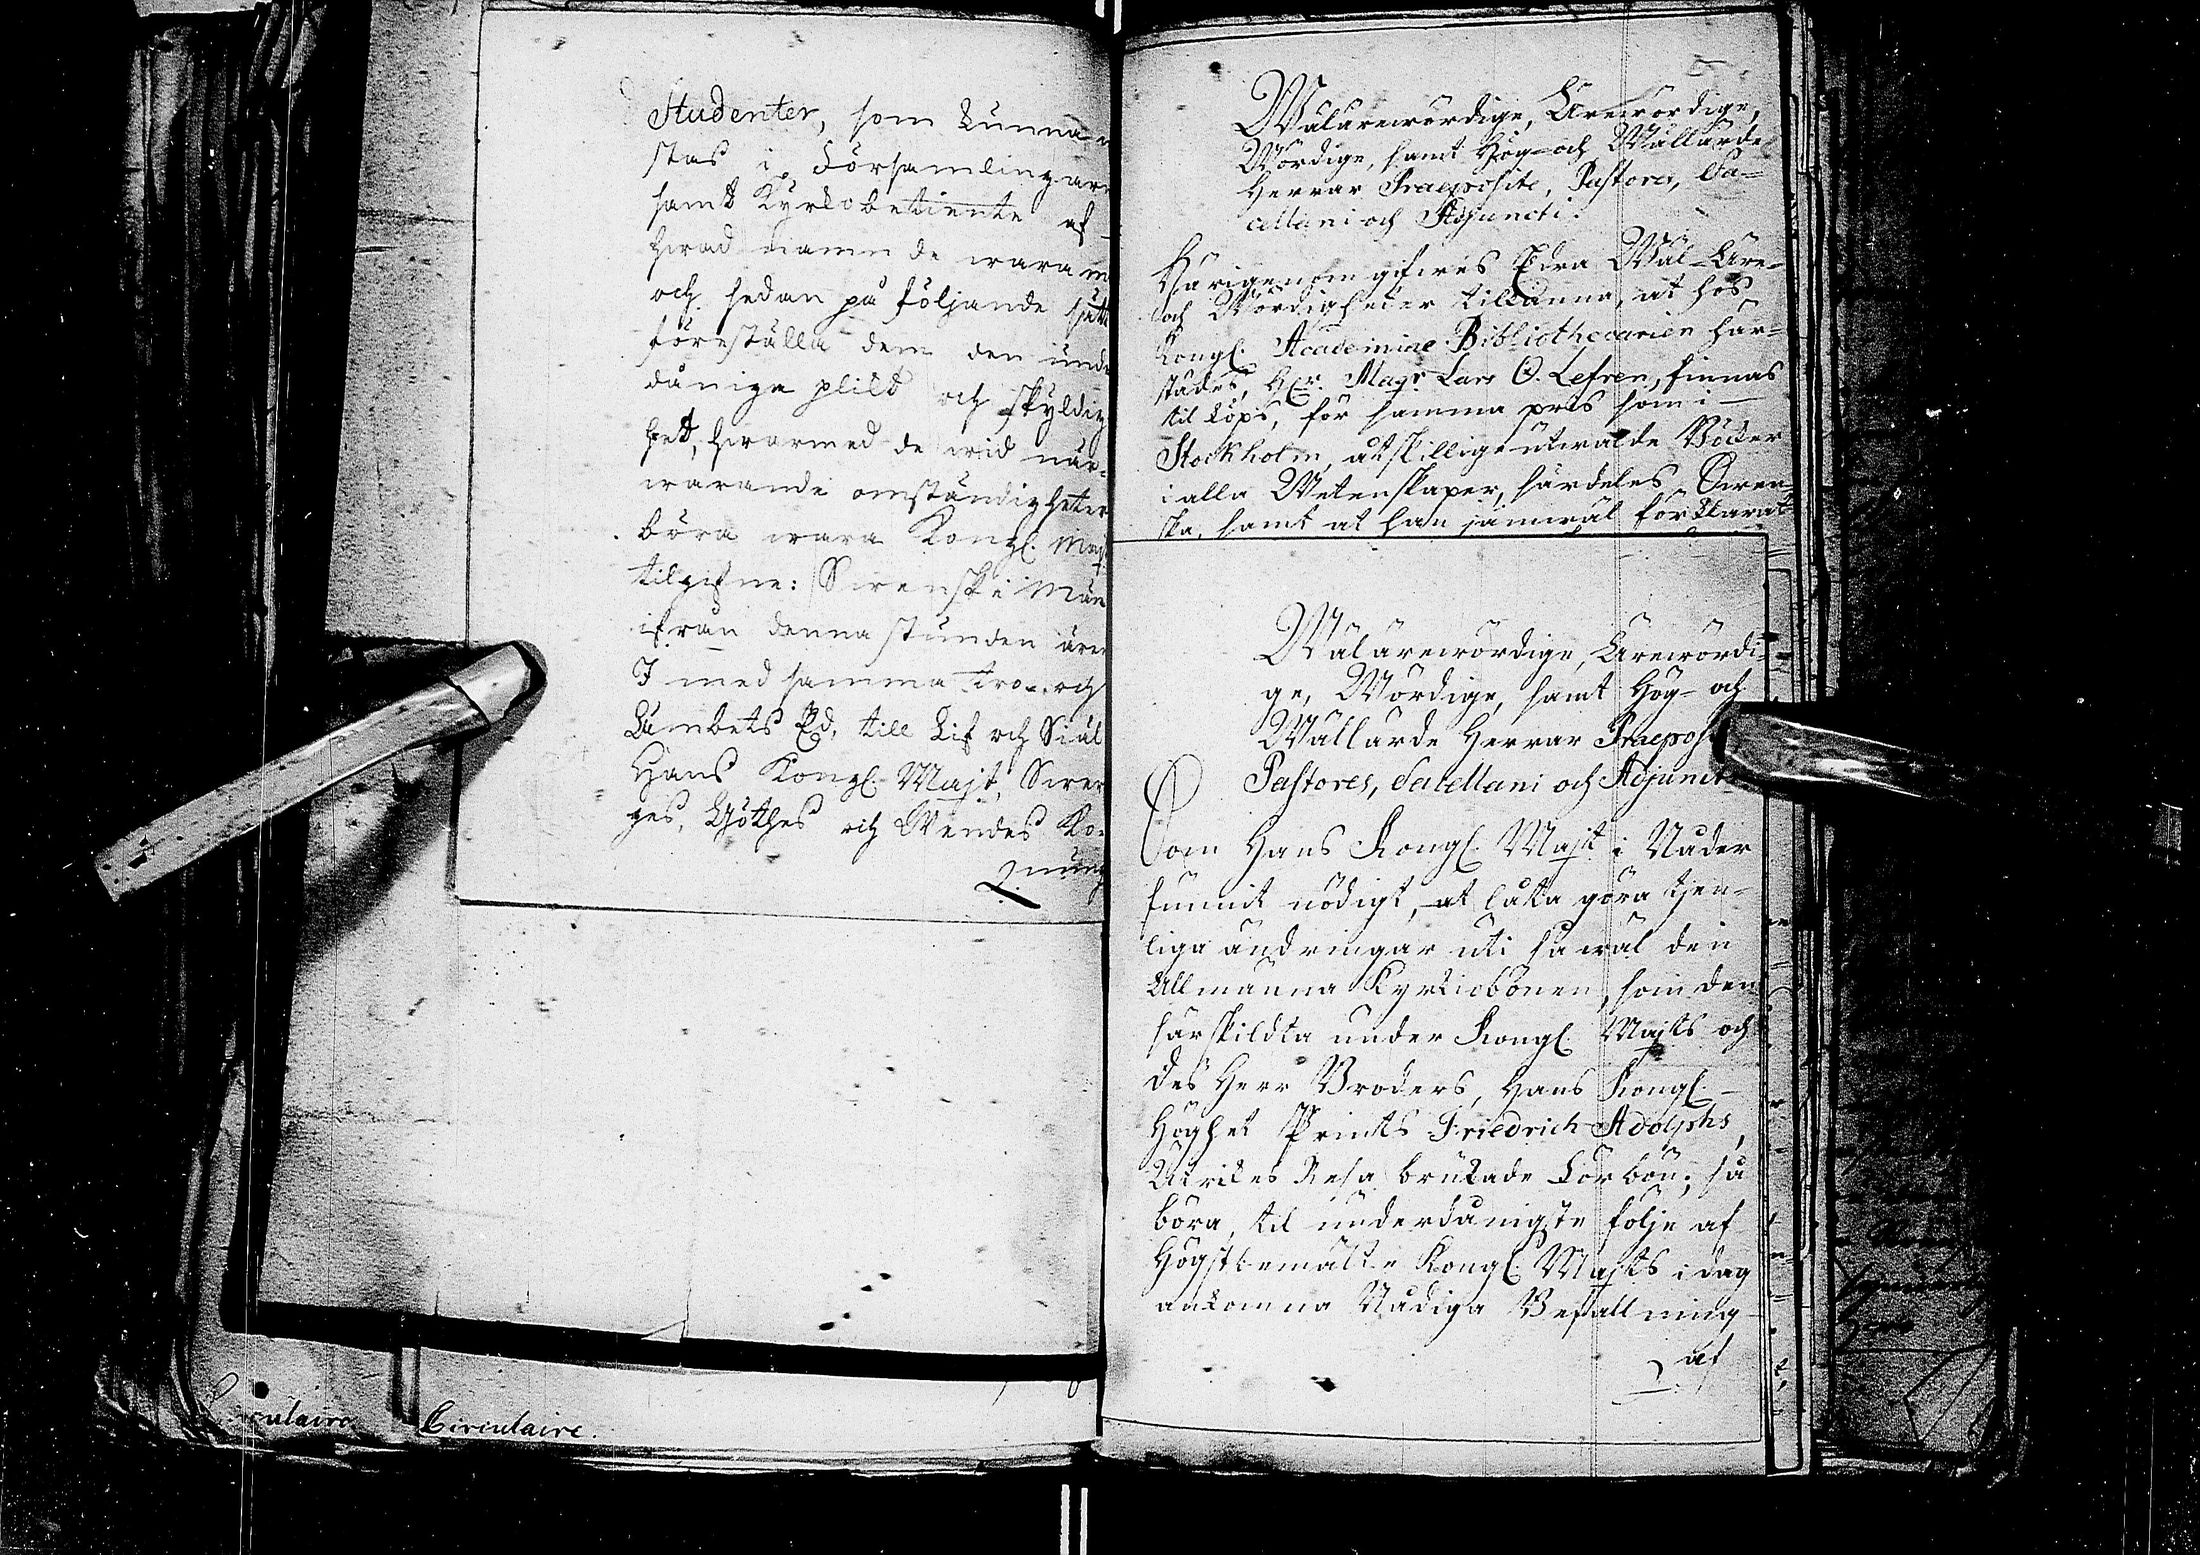 Studenter, som kunna
stas i Församlingar
samt Kyrkobetiente af
hwad namn de wara må
och sedan på följande sätt
föreställa dem den unde
dåniga plikt och skyldig
het, hwarmed de wid när-
warande omständigheter
böra wara Kongl. Majt
tilgifne: Swenske Män
ifrån denna stunden ären
I med samma tro- och
Ämbets Ed, till Lif och Siäl
Hans Kongl. Majt, Swer
ges, Göthes och Wendes Ko-
nung
Circulaire.
Wälärewördige, Ärewördige,
Wördige, samt Hög- och Wällärde
Herrar Praeposite, Pastores, Sa-
cellani och Adjuncti.
Härigenom gifwes Edra Wäl-Äre-
och Wördigheder tilkänna, at hos
Kongl. Academiae Bibliothecarien här-
städes, Hr. Magr Lars O. Lefren, finnas
til köps, för samma pris som i
Stockholm, åtskillige utwalde Böcker
i alla Wetenskaper, särdeles Swen-
ska, samt at han jämwäl förklarat
Wälärewördige, Ärewördi-
ge, Wördige, samt Hög- och
Wällärde Herrar Praeposi
Pastores, Sacellani och Adjuncti
Som Hans Kongl. Majt i Nåder
funnit nödigt, at låta göra tjen-
liga ändringar uti så wäl den
Allmänna Kyrkiobönen, som den
särskildta under Kongl. Majts och
des Herr Broders, Hans Kongl.
Höghet Prints Friedrich Adolphs,
Utrikes Resa brukade Förbön; så
böra, til underdånigste följe af
Högstbemälte Kongl. Majts i dag
ankomna Nådiga Befallning
af